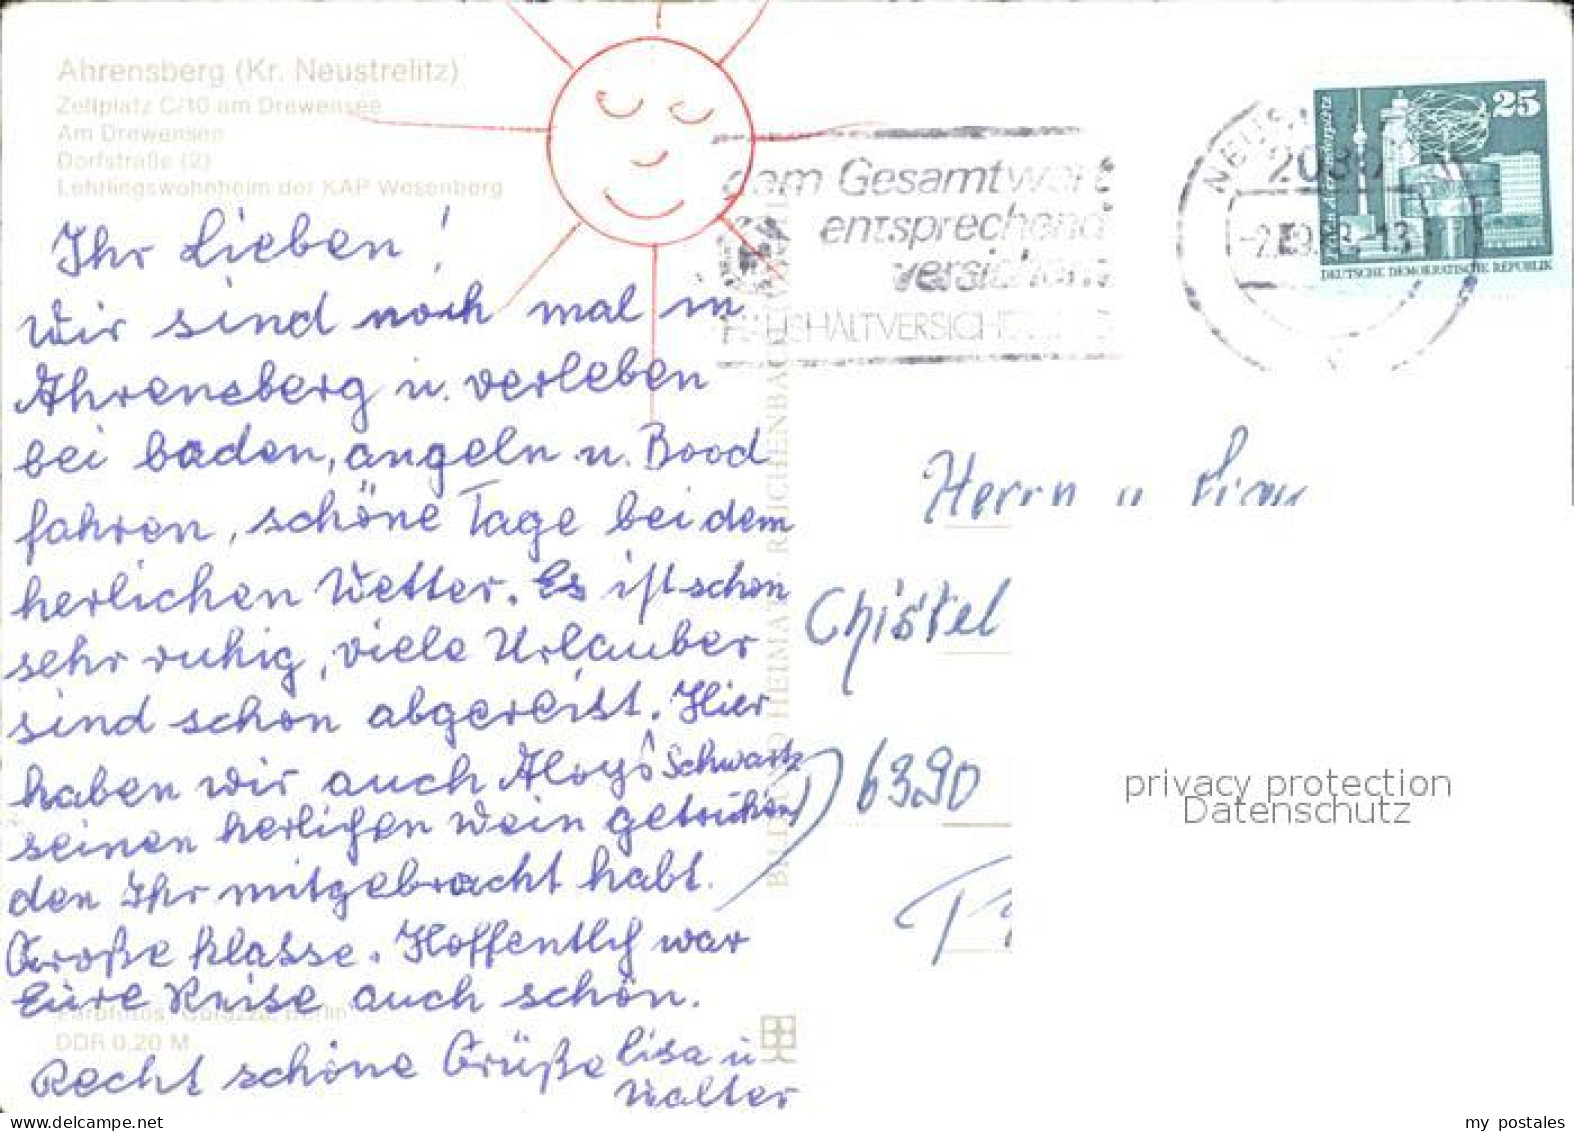 Ahrensberg (Kr. Neustrelitz)
Zeltplatz C/10 am Drewensee
Am Drewensee
Dorfstraße (2)
Lehrlingswohnheim der KAP Wesenberg
Ihr Lieben!
Wir sind noch mal in
Ahrensberg u. verleben
bei baden, angeln u. Bood
fahren, schöne Tage bei dem
herlichen Wetter. Es ist schon
sehr ruhig, viele Urlauber
sind schon abgereist. Hier
haben wir auch Aloys Schwartz
seinen herlichen Wein getrunken
den Ihr mitgebracht habt.
Große Klasse. Hoffentlich war
Eure Reise auch schön.
Recht schöne Grüße Lisa u
Walter
Farbfotos: Berlin
DDR 0,20 M
BILD UND HEIMAT REICHENBACH
dem Gesamtwert
entsprechend
versichern
HAUSHALTVERSICHERUNG
2080
25
DEUTSCHE DEMOKRATISCHE REPUBLIK
Herrn u
Christel
6390
privacy protection
Datenschutz
my postales